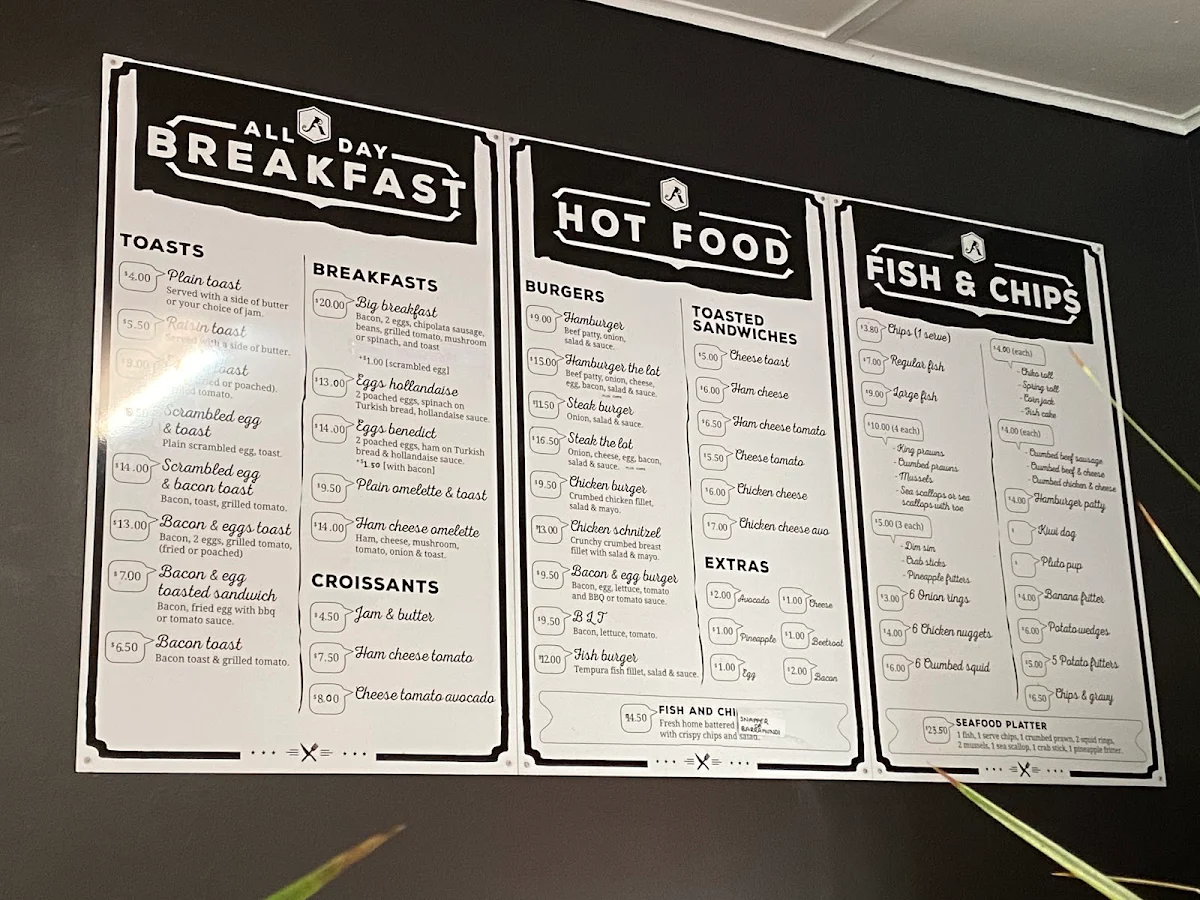 ALL DAY
BREAKFAST
TOASTS
$4.00 Plain toast
Served with a side of butter
or your choice of jam.
$5.50 Raisin toast
Served with a side of butter.
$9.00 toast
or poached).
tomato.
Scrambled egg
& toast
Plain scrambled egg, toast.
$14.00 Scrambled egg
& bacon toast
Bacon, toast, grilled tomato.
$13.00 Bacon & eggs toast
Bacon, 2 eggs, grilled tomato,
(fried or poached)
$7.00 Bacon & egg
toasted sandwich
Bacon, fried egg with bbq
or tomato sauce.
$6.50 Bacon toast
Bacon toast & grilled tomato.
BREAKFASTS
$20.00 Big breakfast
Bacon, 2 eggs, chipolata sausage,
beans, grilled tomato, mushroom
or spinach, and toast
+$1.00 [scrambled egg]
$13.00 Eggs hollandaise
2 poached eggs, spinach on
Turkish bread, hollandaise sauce.
$14.00 Eggs benedict
2 poached eggs, ham on Turkish
bread & hollandaise sauce.
+$1.50 [with bacon]
$9.50 Plain omelette & toast
$14.00 Ham cheese omelette
Ham, cheese, mushroom,
tomato, onion & toast.
CROISSANTS
$4.50 Jam & butter
$7.50 Ham cheese tomato
$8.00 Cheese tomato avocado
HOT FOOD
BURGERS
$9.00 Hamburger
Beef patty, onion,
salad & sauce.
$15.00 Hamburger the lot
Beef patty, onion, cheese,
egg, bacon, salad & sauce.
$11.50 Steak burger
Onion, salad & sauce.
$16.50 Steak the lot
Onion, cheese, egg, bacon,
salad & sauce.
$9.50 Chicken burger
Crumbed chicken fillet,
salad & mayo.
$13.00 Chicken schnitzel
Crunchy crumbed breast
fillet with salad & mayo.
$9.50 Bacon & egg burger
Bacon, egg, lettuce, tomato
and BBQ or tomato sauce.
$9.50 BLT
Bacon, lettuce, tomato.
$12.00 Fish burger
Tempura fish fillet, salad & sauce.
TOASTED
SANDWICHES
$5.00 Cheese toast
$6.00 Ham cheese
$6.50 Ham cheese tomato
$5.50 Cheese tomato
$6.00 Chicken cheese
$7.00 Chicken cheese avo
EXTRAS
$2.00 Avocado $1.00 Cheese
$1.00 Pineapple $1.00 Beetroot
$1.00 Egg $2.00 Bacon
$14.50 FISH AND CHI
Fresh home battered SNAPPER OR BARRAMUNDI
with crispy chips and salad.
FISH & CHIPS
$3.80 Chips (1 serve)
$7.00 Regular fish
$9.00 Large fish
$10.00 (4 each)
- King prawns
- Crumbed prawns
- Mussels
- Sea scallops or sea
scallops with roe
$5.00 (3 each)
- Dim sim
- Crab sticks
- Pineapple fritters
$3.00 6 Onion rings
$4.00 6 Chicken nuggets
$6.00 6 Crumbed squid
$4.00 (each)
- Chiko roll
- Spring roll
- Corn jack
- Fish cake
$4.00 (each)
- Crumbed beef sausage
- Crumbed beef & cheese
- Crumbed chicken & cheese
$4.00 Hamburger patty
$ Kiwi dog
$ Pluto pup
$4.00 Banana fritter
$6.00 Potato wedges
$5.00 5 Potato fritters
$6.50 Chips & gravy
$23.50 SEAFOOD PLATTER
1 fish, 1 serve chips, 1 crumbed prawn, 2 squid rings,
2 mussels, 1 sea scallop, 1 crab stick, 1 pineapple fritter.